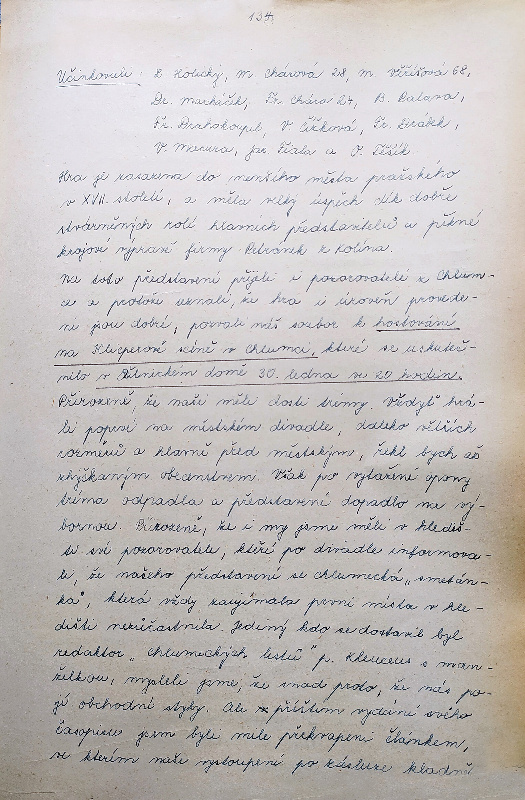 134.
Účinkovali: R. Holický, M. Chárová 28, M. Věříšová 68,
Dr. Markáčik, Fr. Chára 27, B. Balana,
Fr. Drahokoupil, V. Čížková, Fr. Dirášek,
V. Macura, Jar. Fiala a O. Těšík.
Hra je zasazena do menšího města pražského
v XVII. století, a měla velký úspěch dík dobře
stvárněných rolí hlavních představitelů a pěkné
krojové výpravě firmy Petránek z Kolína.
Na toto představení přijeli i pozorovatelé z Chlum-
ce a protože uznali, že hra i úroveň provede-
ní jsou dobré, pozvali náš soubor k hostování
na Klicperově scéně v Chlumci, které se uskuteč-
nilo v Dělnickém domě 30. ledna ve 20 hodin.
Přirozeně, že naši měli dosti trémy. Vždyť hrá-
li poprvé na městském divadle, daleko větších
rozměrů a hlavně před městským, řekl bych až
zhýčkaným obecenstvem. Však po vytažení opony
tréma odpadla a představení dopadlo na vý-
bornou. Přirozeně, že i my jsme měli v hlediš-
ti své pozorovatele, kteří po divadle informova-
li, že našeho představení se chlumecká "smetán-
ka", která vždy zaujímala první místa v hle-
dišti nezúčastnila. Jediný kdo se dostavil byl
redaktor "Chlumeckých listů" p. Kleucerus s man-
želkou, mysleli jsme, že snad proto, že nás po-
jí obchodní styky. Ale příštím vydání svého
časopisu jsem byli mile překvapeni článkem,
ve kterém naše vystoupení po zásluze kladně